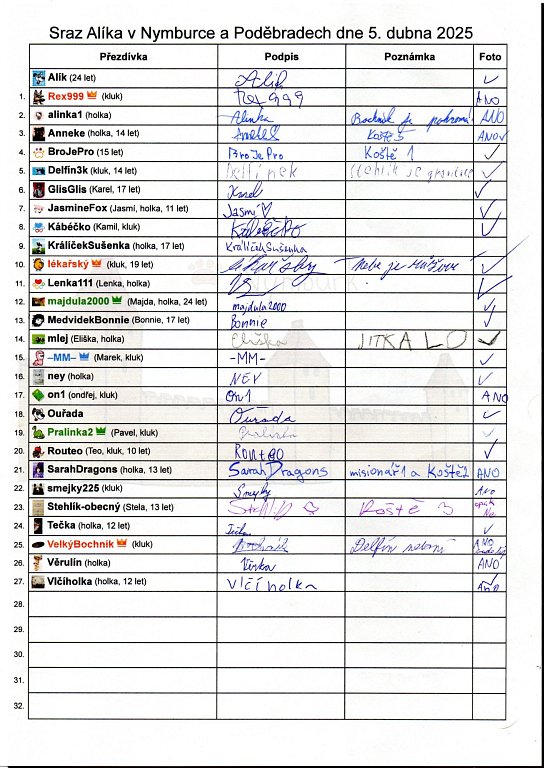 Sraz Alíka v Nymburce a Poděbradech dne 5. dubna 2025
Přezdívka Podpis Poznámka Foto
Alík (24 let) Alík ✓
1. Rex999 (kluk) Rex999 ANO
2. alinka1 (holka) Alinka Bochník je ANO
3. Anneke (holka, 14 let) Koště 5 ANO
4. BroJePro (15 let) BroJePro Koště 1 ✓
5. Delfín3k (kluk, 14 let) ✓
6. GlisGlis (Karel, 17 let) Karel ✓
7. JasmineFox (Jasmí, holka, 11 let) Jasmí ♡ ✓
8. Kábéčko (Kamil, kluk) ✓
9. KrálíčekSušenka (holka, 17 let) KrálíčekSušenka
10. lékařský (kluk, 19 let) lékařský Nebe je růžové ✓
11. Lenka111 (Lenka, holka) ✓
12. majdula2000 (Majda, holka, 24 let) majdula2000 ✓
13. MedvidekBonnie (Bonnie, 17 let) Bonnie ✓
14. mlej (Eliška, holka) Eliška JITKALO ✓
15. –MM– (Marek, kluk) -MM- ✓
16. ney (holka) NEY ✓
17. on1 (ondřej, kluk) On1 ANO
18. Ouřada Ouřada ✓
19. Pralinka2 (Pavel, kluk) Pralinka ✓
20. Routeo (Teo, kluk, 10 let) ROUTEO ✓
21. SarahDragons (holka, 13 let) SarahDragons misionář1 a Koště2 ANO
22. smejky225 (kluk) Smejky Ano
23. Stehlík-obecný (Stela, 13 let) Koště 3
24. Tečka (holka, 12 let) Tečka ✓
25. VelkýBochník (kluk) Bochník Delfín ANO
26. Věrulín (holka) Věrka ANO
27. Vlčíholka (holka, 12 let) vlčíholka ANO
28.
29.
30.
31.
32.